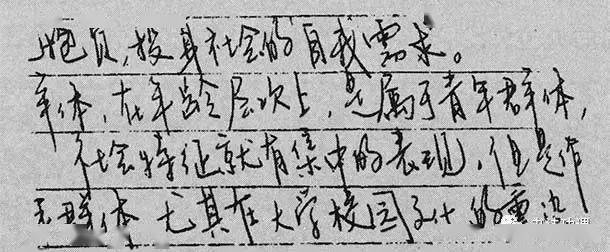 抱负,投身社会的自我需求。
群体,在年龄层次上,是属于青年群体,
社会特征就有集中的表现,但是作
群体 尤其在大学校园文化的熏